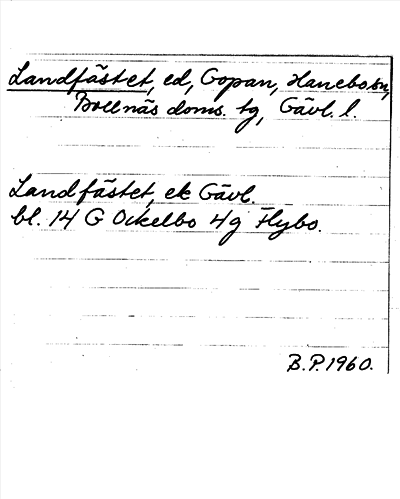 Landfästet, ed, Gopan, Hanebo sn,
Bollnäs doms. tg, Gävl. l.
Landfästet, ek Gävl.
bl. 14 G Ockelbo 4g Flybo.
B.P. 1960.